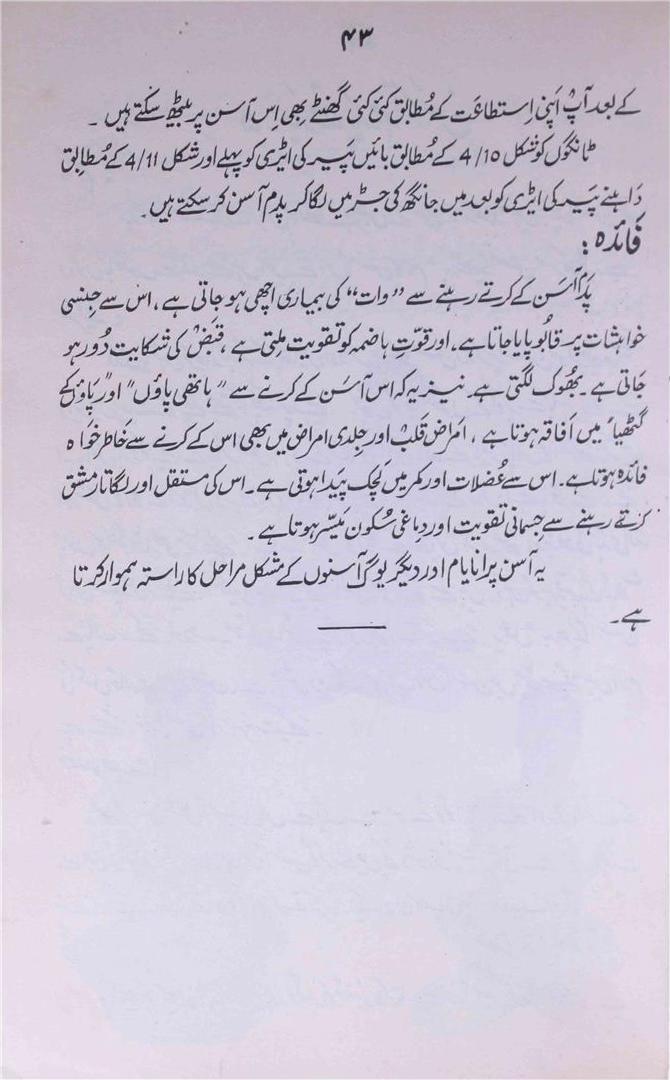 ۴۳
کے بعد آپ اَپنی اِستطاعَت کے مُطابق کئی کئی گھنٹے بھی اِس آسَن پر بیٹھ سَکتے ہیں ۔
ٹانگوں کو شکل 4/10 کے مُطابق بائیں پَیر کی ایڑی کو پہلے اور شکل 4/11 کے مُطابِق
دَاہنے پَیر کی ایڑی کو بعد میں جانگھ کی جڑ میں لگا کر پدم آسن کر سکتے ہیں۔
فَائدہ :
پدم آسَن کے کرتے رہنے سے ”وات“ کی بیماری اچھی ہو جاتی ہے ، اس سے جِنسی
خواہشات پر قابُو پایا جاتا ہے، اور قوّتِ ہاضمہ کو تقویت ملتی ہے ، قبَض کی شکایت دُور ہو
جَاتی ہے ۔ بھُوک لگتی ہے ۔ نیز یہ کہ اس آسَن کے کرنے سے ”ہاتھی پاؤں“ اور ”پَاؤں کے
گٹھیا“ میں اَفاقہ ہوتا ہے ، امرَاض قلبْ اور جلِدی امراض میں بھی اس کے کرنے سے خَاطر خَواہ
فائدہ ہوتا ہے۔ اس سے عُضلات اور کمر میں لَچک پَیدا ہوتی ہے ۔ اس کی مستقل اور لگاتار مشق
کرتے رہنے سے جِسمانی تقویت اور دِماغی سُکون مَیسّر ہوتا ہے ۔
یہ آسن پرانایام اور دیگر یوگ آسنوں کے مشکل مراحل کا راستہ ہموار کرتا
ہے ۔